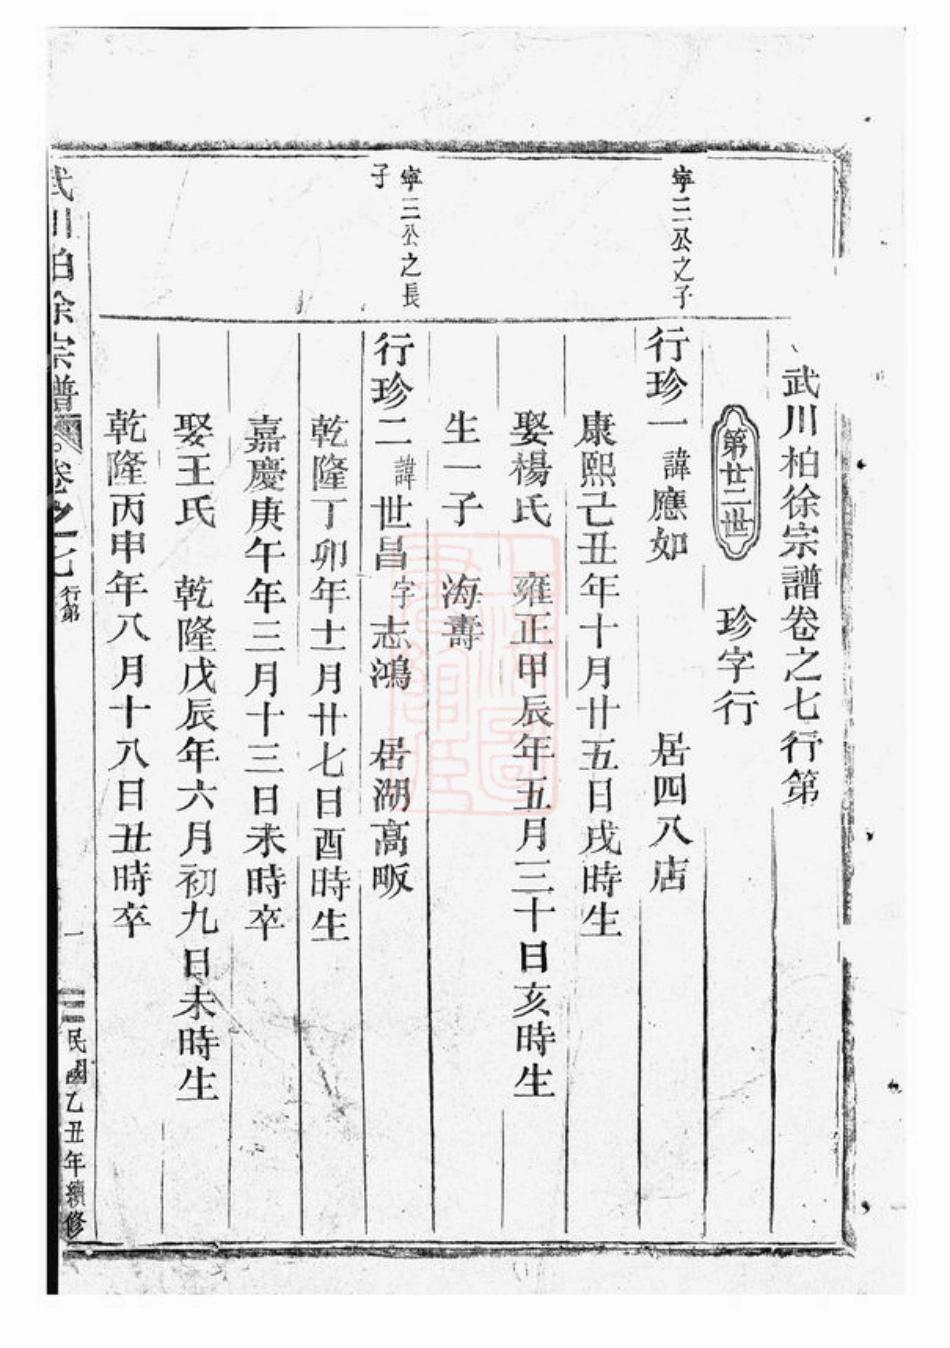 武川柏徐宗譜卷之七行第
第廿二世 珍字行
寧二公之子
行珍一 諱應如 居四八店
康熙己丑年十月廿五日戌時生
娶楊氏 雍正甲辰年五月三十日亥時生
生一子 海壽
寧三公之長
子
行珍二 諱世昌 字志鴻 居湖高畈
乾隆丁卯年十一月廿七日酉時生
嘉慶庚午年三月十三日未時卒
娶王氏 乾隆戊辰年六月初九日未時生
乾隆丙申年八月十八日丑時卒
武川柏徐宗譜 卷之七 行第 一 民國乙丑年續修